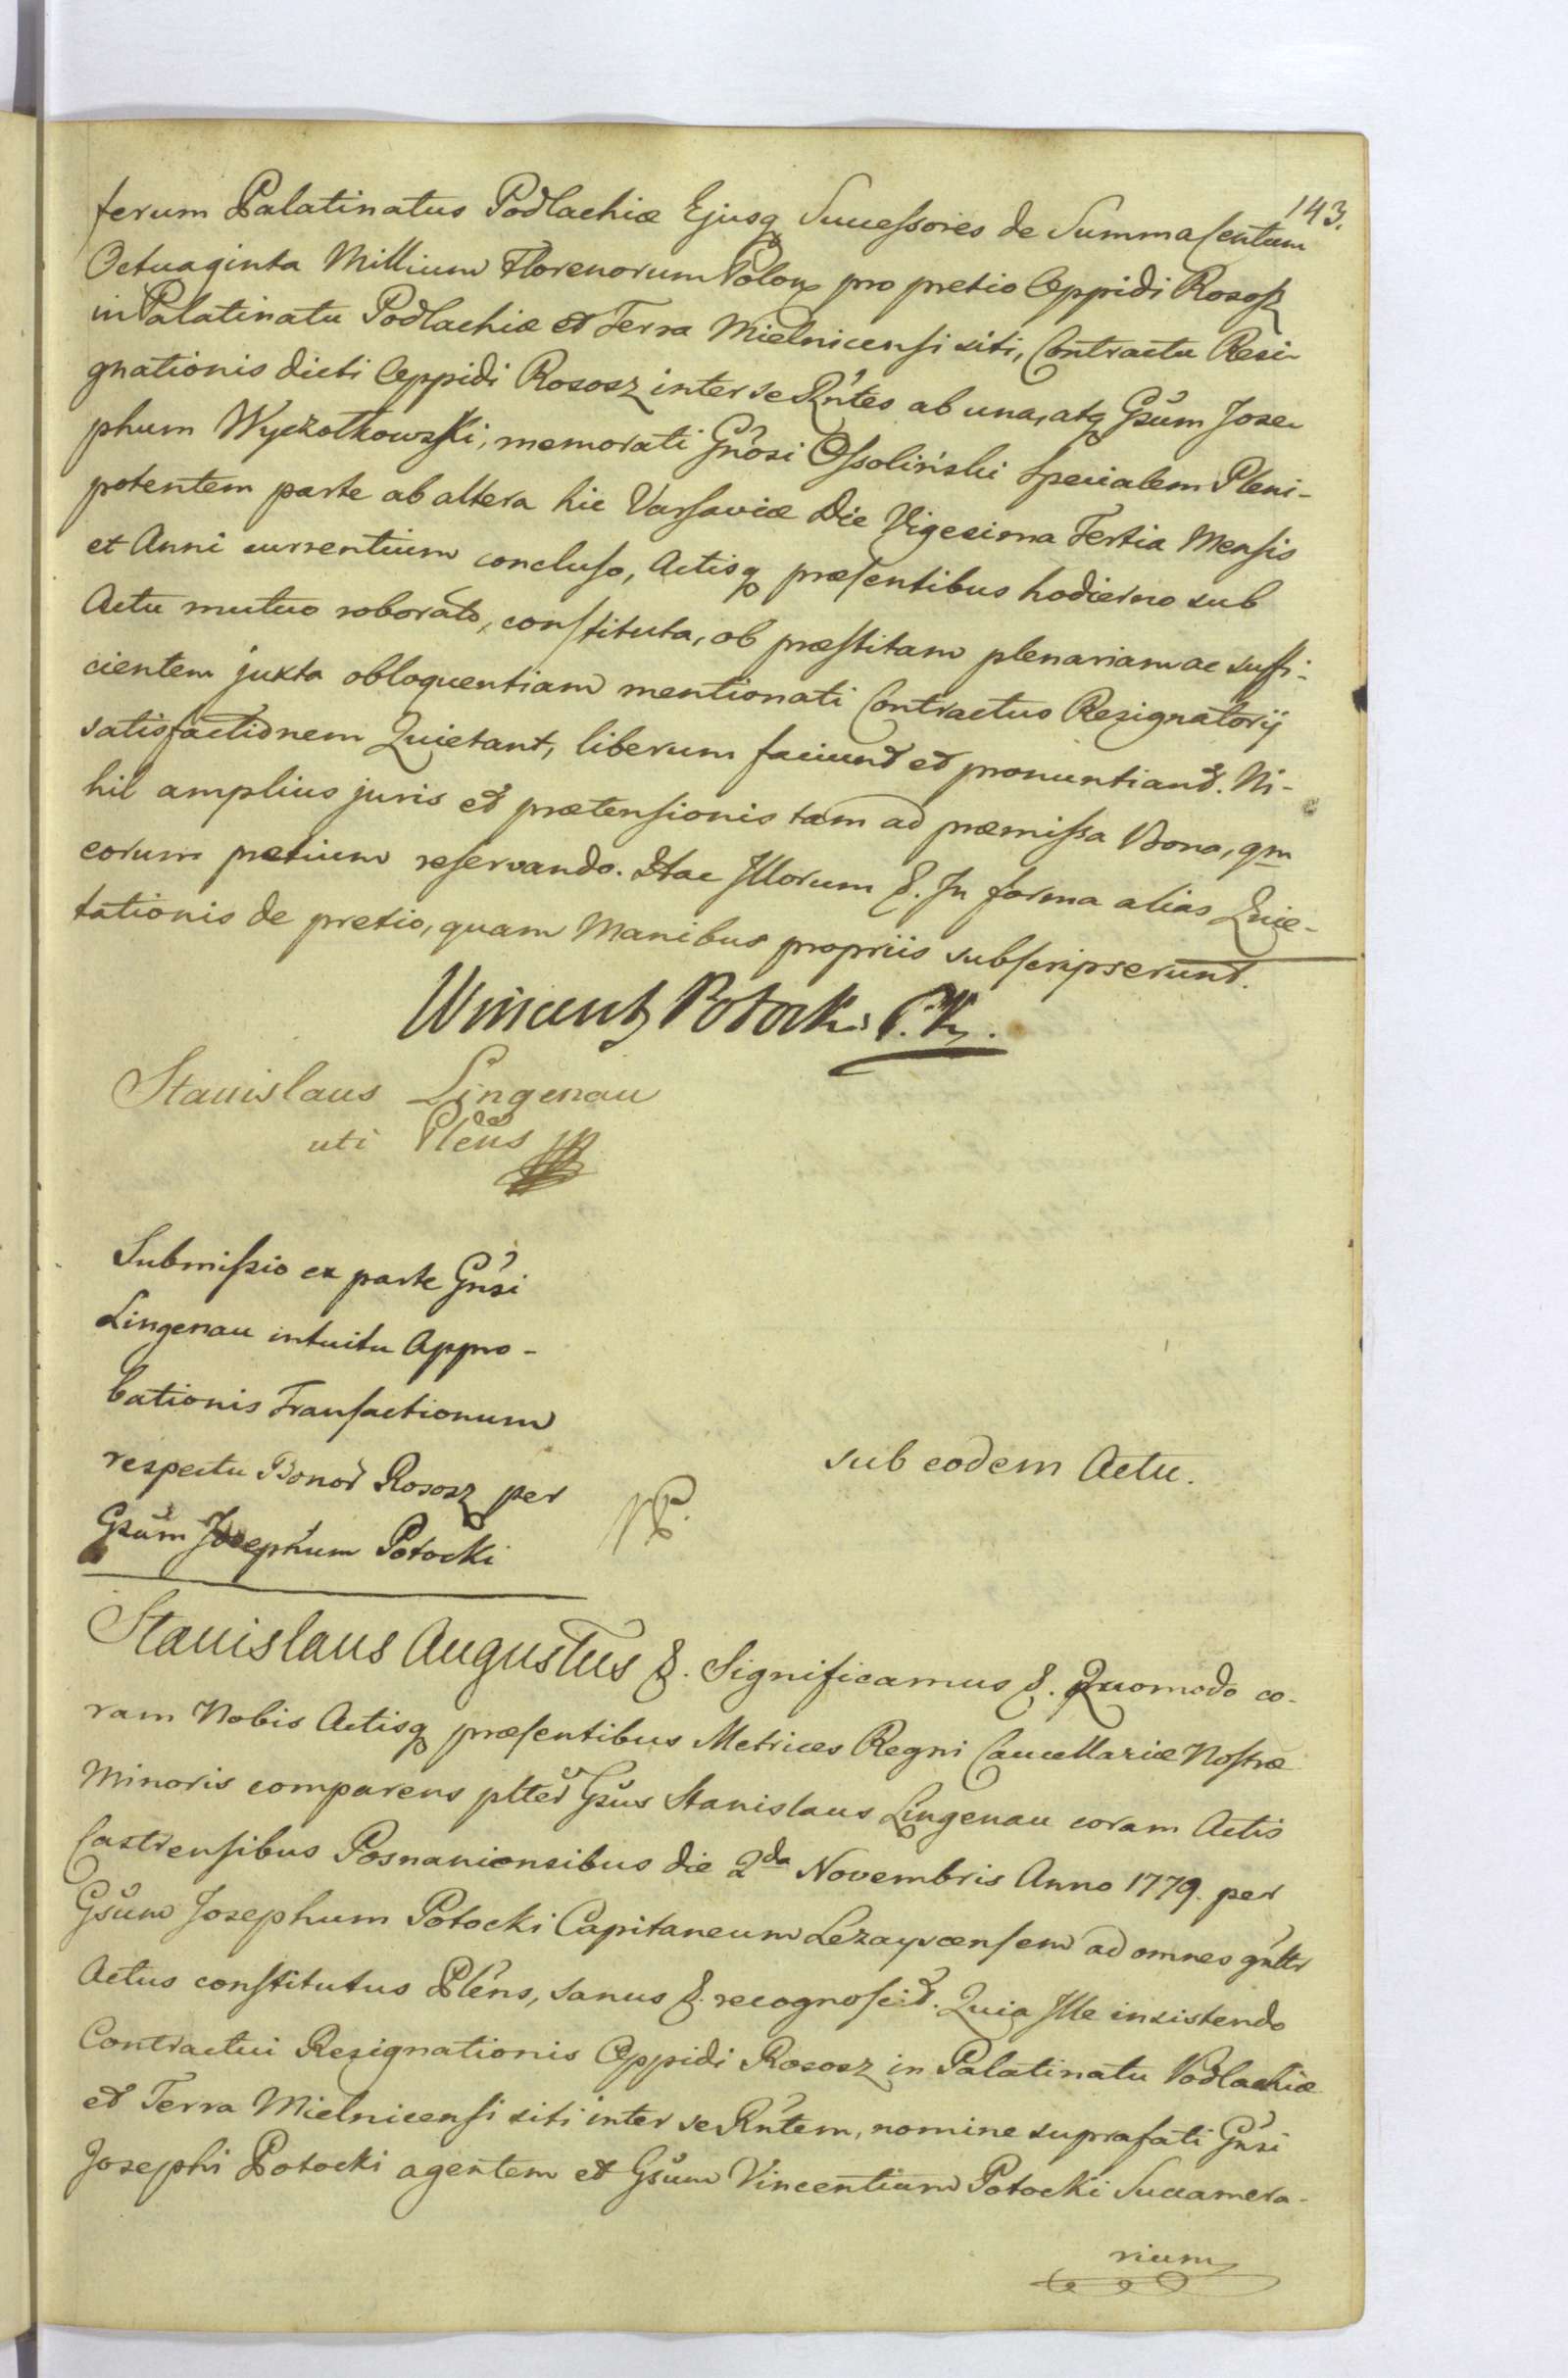 143.
ferum Palatinatus Podlachiæ Ejusq Succeſsores de Summa Centum
Octuaginta Millium Florenorum Polon pro pretio Oppidi Rosoſz
in Palatinatu Podlachiæ et Terra Mielnicenſi siti, Contractu Resi-
gnationis dicti Oppidi Rososz inter se Rñtes ab una, atq Gsum Jose-
phum Wyczołkowski, memorati Gnosi Oſsoliński Specialem Pleni-
potentem parte ab altera hic Varſaviæ Die Vigesima Tertia Menſis
et Anni currentium concluſo, Actisq præſentibus hodierno sub
Actu mutuo roborato, conſtituta, ob præſtitam plenariam ac suffi-
cientem juxta obloquentiam mentionati Contractus Resignatorij
satisfactionem Quietant, liberum faciunt et pronuntiant. Ni-
hil amplius juris et prætenſionis tam ad præmiſsa Bona, qm
eorum pretium reſervando. Hac Illorum &. In forma alias Quie-
tationis de pretio, quam Manibus propriis subſcripserunt.
Wincenty Potocki P.K.
Stanislaus Lingenau
uti Plens
Submiſsio ex parte Gnsi
Lingenau intuitu Appro-
bationis Tranſactionum
respectu Bonor Rososz per
Gsum Josephum Potocki
sub eodem Actu.
Stanislaus Augustus &. Significamus &. Quomodo co-
ram Nobis Actisq præſentibus Metrices Regni Cancellariæ Noſtræ
Minoris comparens plter Gsus Stanislaus Lingenau coram Actis
Castrenſibus Posnaniensibus die 2da Novembris Anno 1779. per
Gsum Josephum Potocki Capitaneum Lezayscenſem ad omnes gnltr
Actus conſtitutus Plens, sanus &. recognoſcit. Quia Ille insistendo
Contractui Resignationis Oppidi Rososz in Palatinatu Podlachiæ
et Terra Mielnicenſi siti inter se Rñtem, nomine suprafati Gnsi
Josephi Potocki agentem et Gsum Vincentium Potocki Succamera-
rium